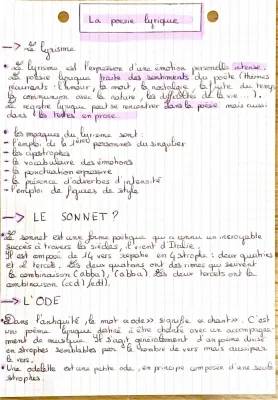 La poésie lyrique
→ Le lyrisme
• Le lyrisme est l'expression d'une émotion personnelle intense.
La poésie lyrique traite des sentiments du poète (thèmes
récurrents : l'amour, la mort, la nostalgie, la fuite du temps
la communion avec la nature, les difficultés de la vie...).
Le registre lyrique peut se rencontrer dans la poésie mais aussi
dans les textes en prose.
• les marques du lyrisme sont :
- l'emploi de la 1ère personnes du singulier
- les apostrophes
- le vocabulaire des émotions
- la ponctuation expressive
- la présence d'adverbes d'intensité
- l'emploi de figures de style
→ LE SONNET ?
• Le sonnet est une forme poétique qui a connu un incroyable
succès à travers les siècles, il vient d'Italie.
Il est composé de 14 vers répartie en 4 strophe : deux quatrins
et 2 tercets. Les deux quatrains ont des rimes qui suivent
la combinaison (abba), (abba). Les deux tercets ont la
combinaison (ccd) (eed).
→ L'ODE
• Dans l'antiquité, le mot « ode » signifie « chant ». C'est
un poème lyrique destiné à être chanté avec un accompagne
ment de musique. Il s'agit généralement d'un poème divisé
en strophes semblables par le nombre de vers mais aussi par
le vers.
• Une odelette est une petite ode, en principe composer d'une seule
strophes.